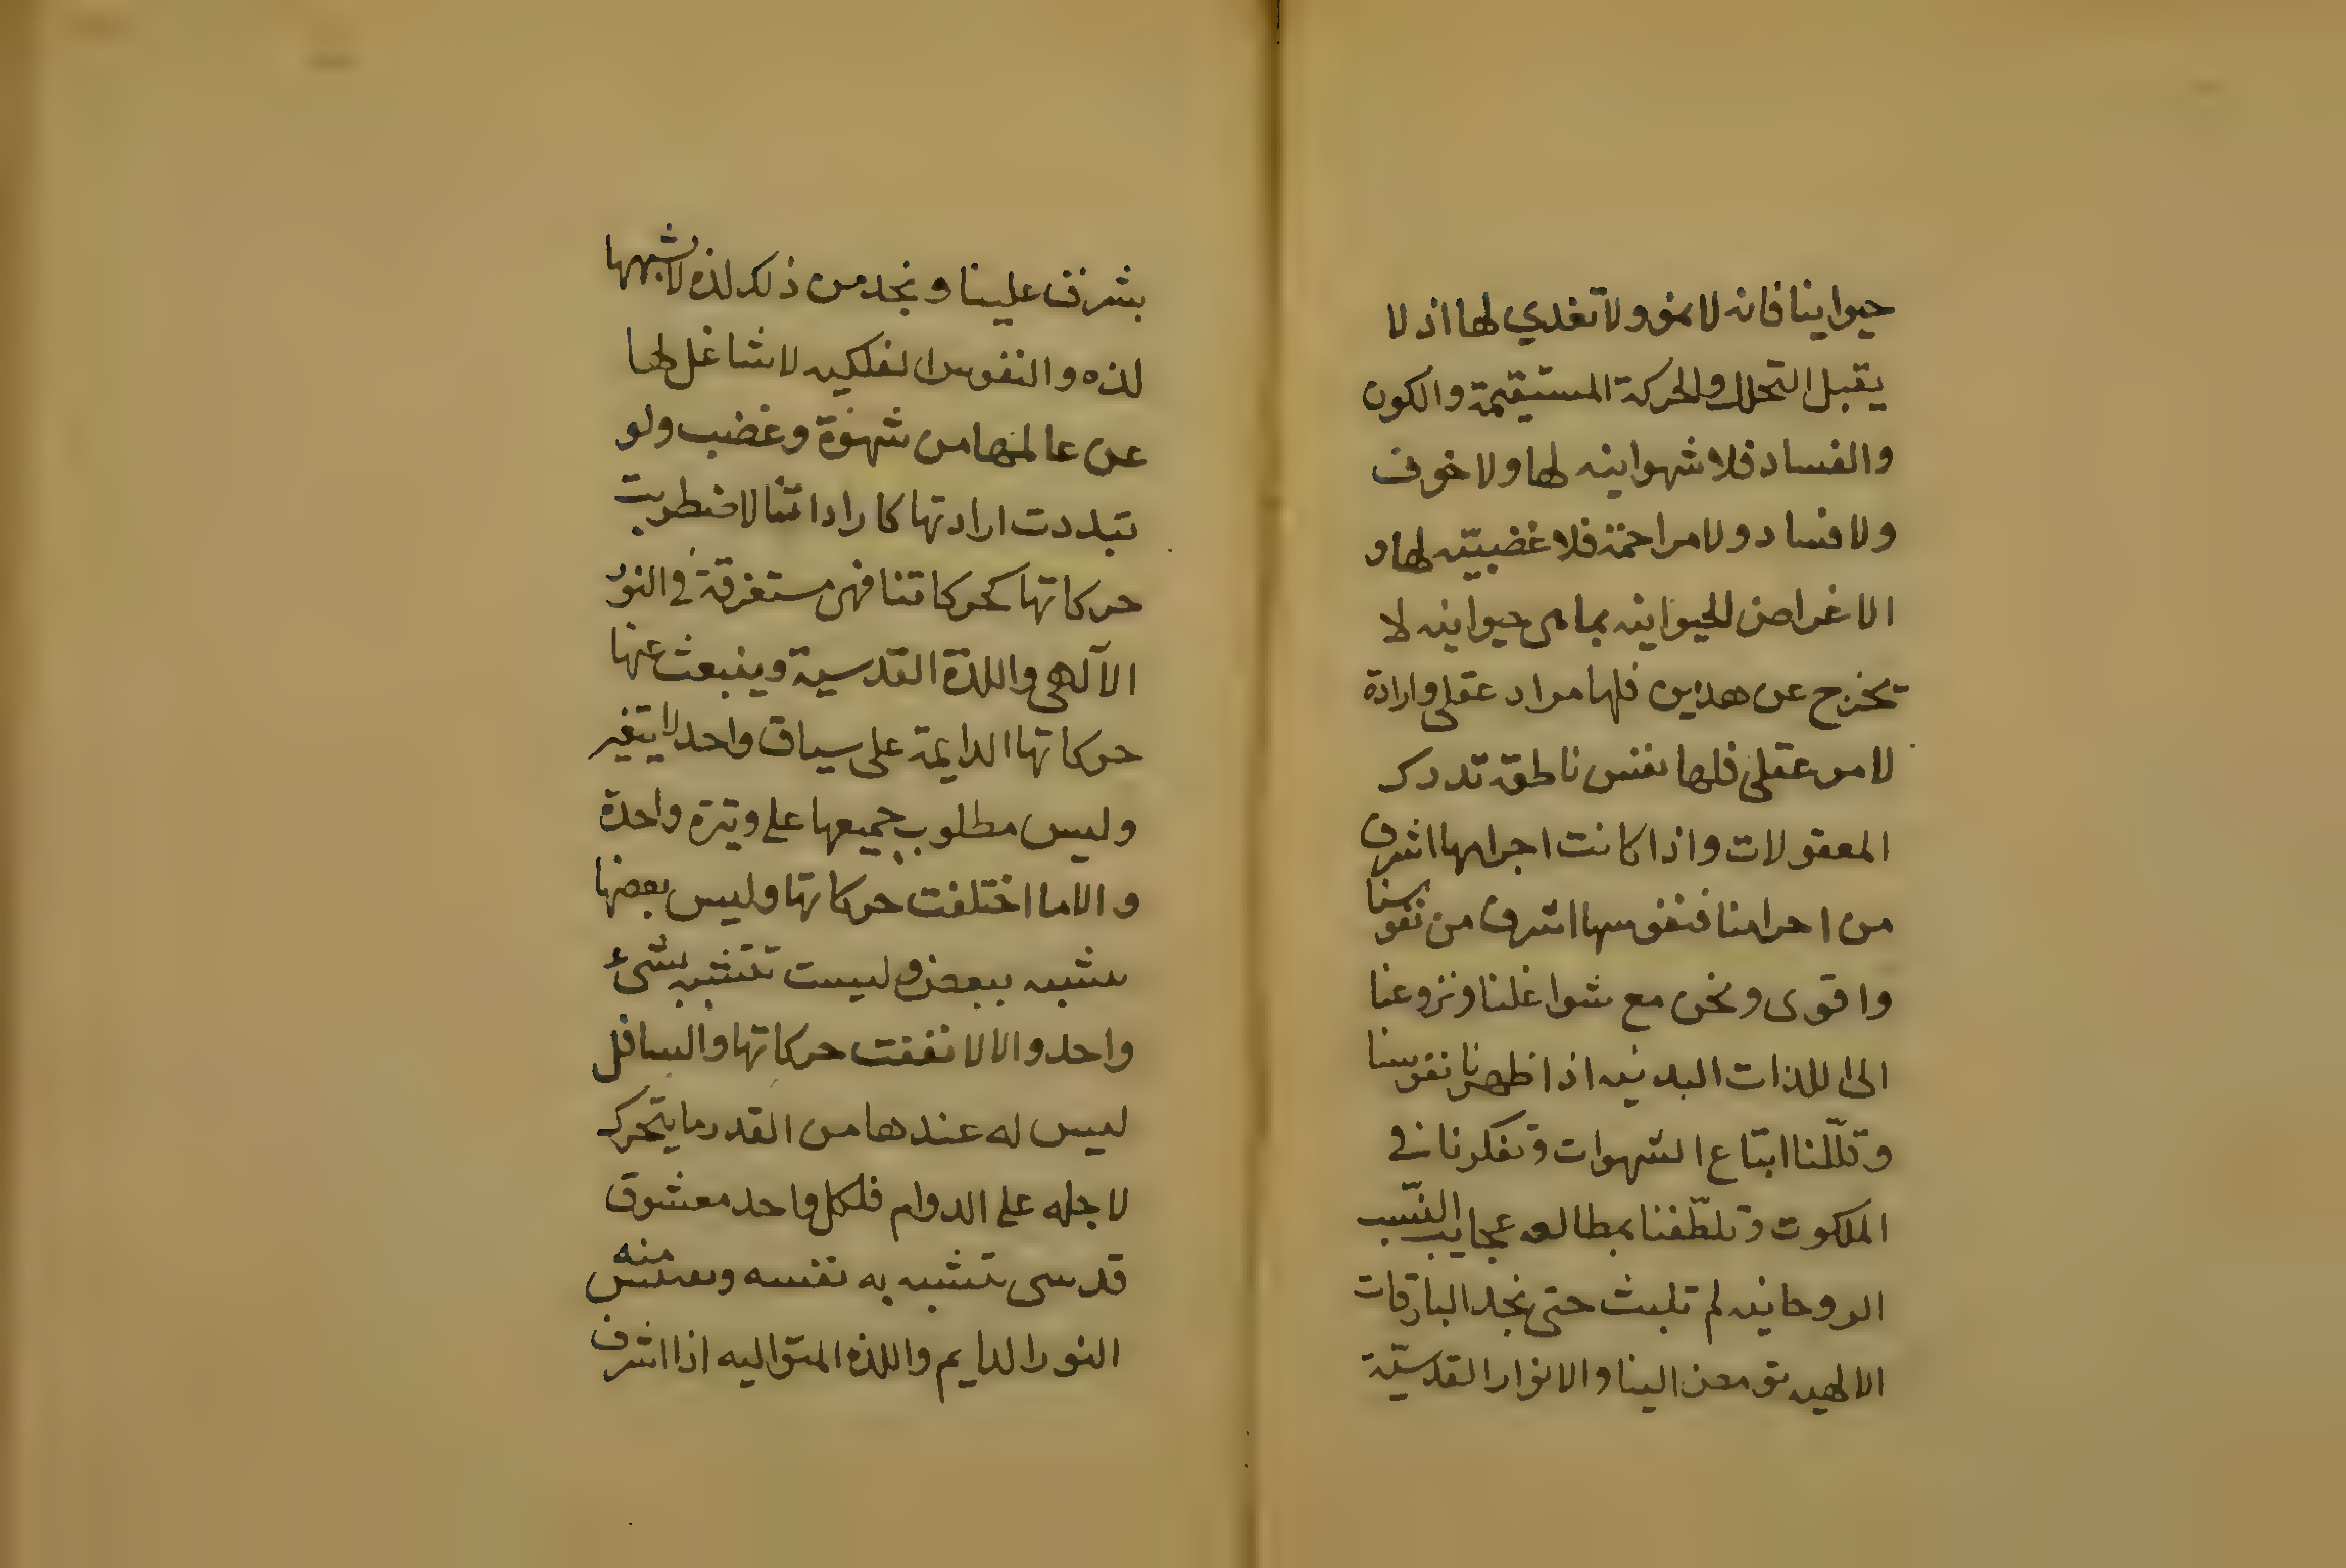 حيوانينا فانه لا نمو ولا تغدي لها اذ لا
يقبل التحلل والحركة المستقيمة والكون
والفساد فلا شهوانيه لها ولا خوف
ولا فساد ولا مزاحمة فلا غضبيّه لها و
الاغراض الحيوانيه بما هي حيوانيه لا
تخرج عن هدين فلها مراد عقلي وارادة
لامر عقلي فلها نفس ناطقه تدرك
المعقولات واذا كانت اجرامها اشرف
من اجرامنا فنفوسها اشرف من نفوسنا
واقوى ونحن مع شواغلنا ونزوعنا
الى اللذات البدنيه اذا طهرنا نفوسنا
وقلّلنا اتباع الشهوات وتفكرنا في
الملكوت وتلطّفنا بمطالعه عجايب النّسب
الروحانيه لم تلبث حتى نجد البارقات
الالهيه تومض الينا والانوار القدسيّة
بشرف علينا ونجد من ذلك لذه لا شبهها
لذه والنفوس الفلكيه لا شاغل لها
عن عالمها من شهوة وغضب ولو
تبددت ارادتها كاراداتنا لاضطربت
حركاتها كحركاتنا فهي مستغرقة في النور
الآلهي واللذة القدسية وينبعث عنها
حركاتها الدايمة على سياق واحد لا يتغير
وليس مطلوب جميعها على وتيرة واحدة
والا ما اختلفت حركاتها وليس بعضها
يتشبه ببعض وليست تتشبه بشئ
واحد والا لاتفقت حركاتها والسافل
ليس له عندها من القدر ما يتحرك
لاجله على الدوام فلكل واحد معشوق
قدسى يتشبه به نفسه ويقتبس منه
النور الدايم واللذه المتواليه اذا اشرف